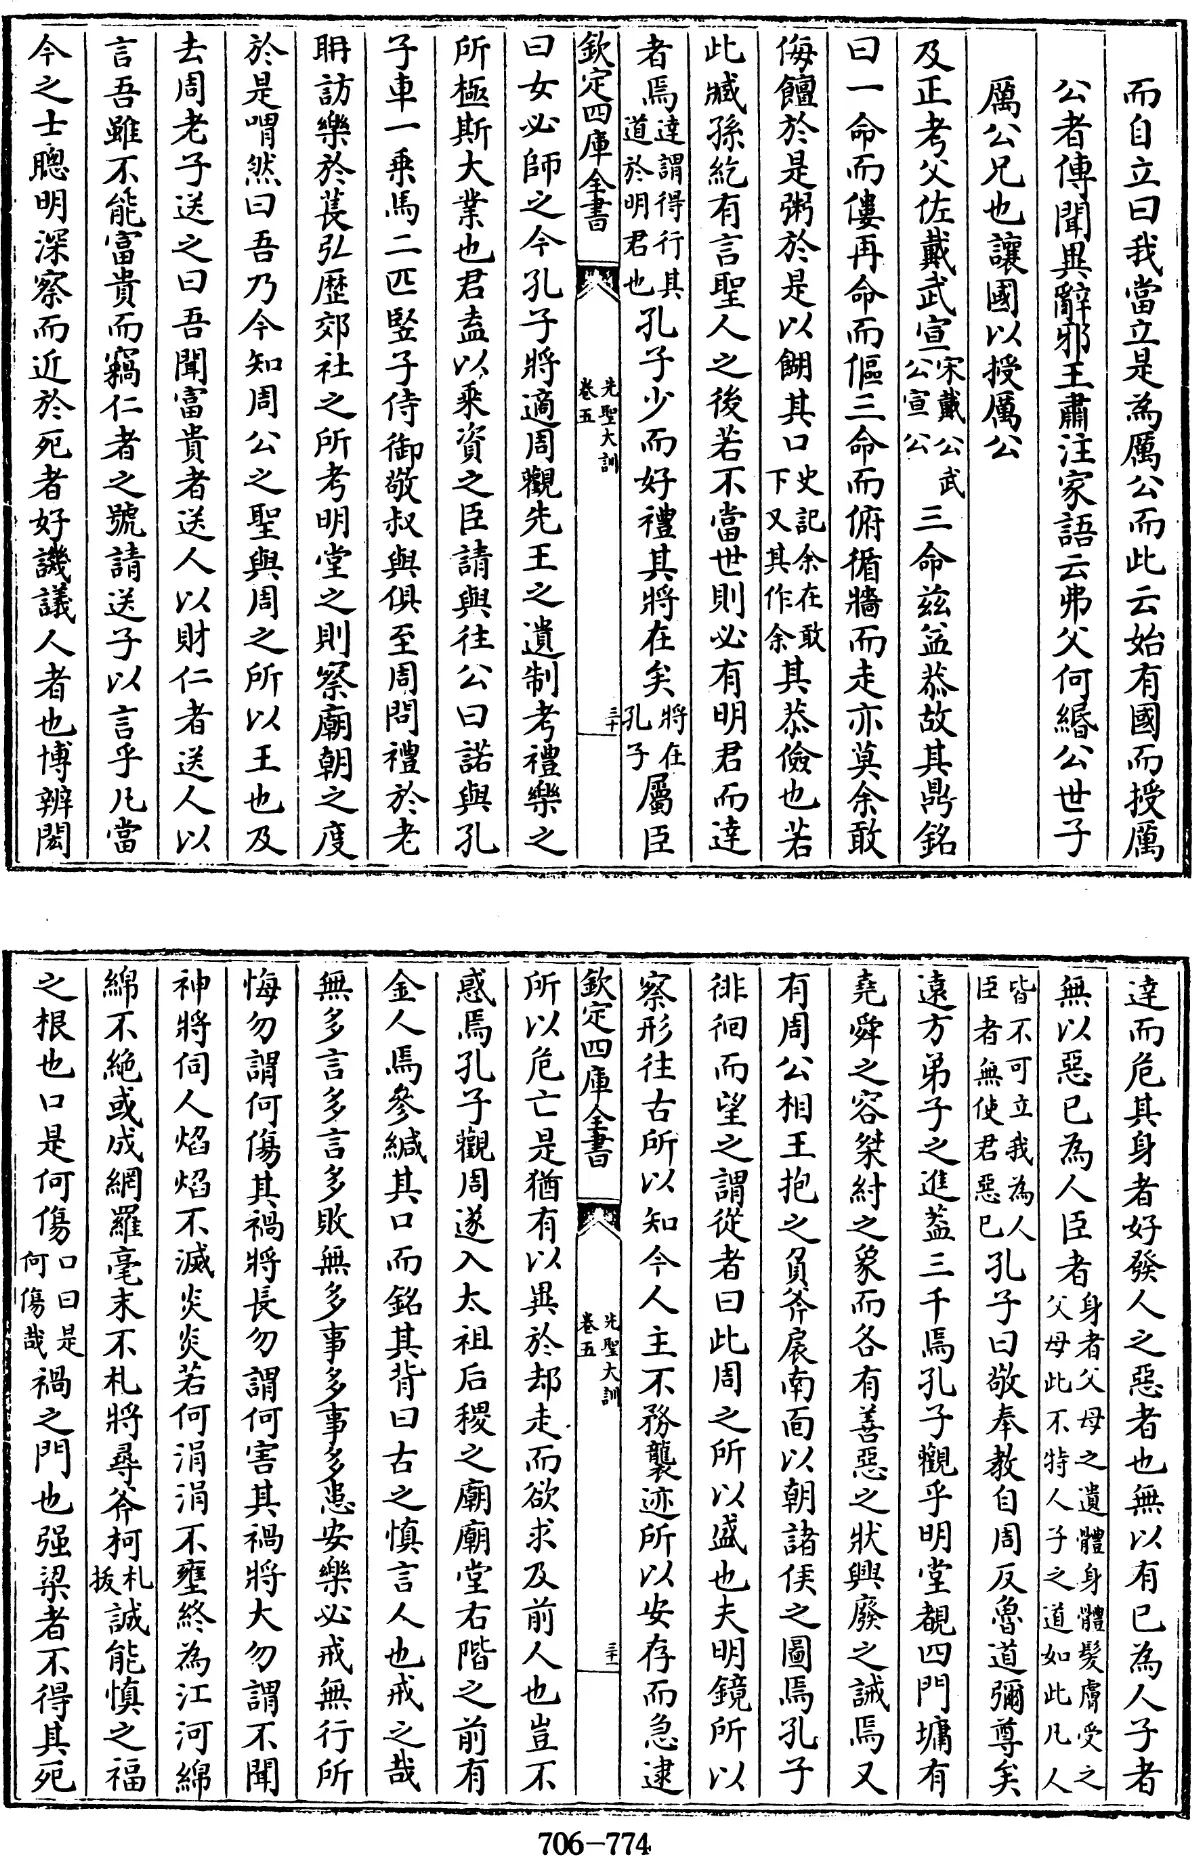 而自立曰我當立是為厲公而此云始有國而授厲
公者傳聞異辭邪王肅注家語云弗父何緡公世子
厲公兄也讓國以授厲公
及正考父佐戴武宣宋戴公武公宣公三命兹益恭故其鼎銘
曰一命而僂再命而傴三命而俯循牆而走亦莫余敢
侮饘於是粥於是以餬其口史記余在敢下又其作余其恭儉也若
此臧孫紇有言聖人之後若不當世則必有明君而達
者焉達謂得行其道於明君也孔子少而好禮其將在矣將在孔子屬臣
欽定四庫全書 先聖大訓 卷五 三十
曰女必師之今孔子將適周觀先王之遺制考禮樂之
所極斯大業也君盍以乘資之臣請與往公曰諾與孔
子車一乘馬二匹豎子侍御敬叔與俱至周問禮於老
聃訪樂於萇弘歷郊社之所考明堂之則察廟朝之度
於是喟然曰吾乃今知周公之聖與周之所以王也及
去周老子送之曰吾聞富貴者送人以財仁者送人以
言吾雖不能富貴而竊仁者之號請送子以言乎凡當
今之士聰明深察而近於死者好譏議人者也博辨閎
達而危其身者好發人之惡者也無以有已為人子者
無以惡已為人臣者身者父母之遺體身體髮膚受之父母此不特人子之道如此凡人
皆不可立我為人臣者無使君惡已孔子曰敬奉教自周反魯道彌尊矣
遠方弟子之進蓋三千焉孔子觀乎明堂覩四門墉有
堯舜之容桀紂之象而各有善惡之狀興廢之誡焉又
有周公相王抱之負斧扆南面以朝諸侯之圖焉孔子
徘徊而望之謂從者曰此周之所以盛也夫明鏡所以
察形往古所以知今人主不務襲迹所以安存而急逮
欽定四庫全書 先聖大訓 卷五 三十一
所以危亡是猶有以異於却走而欲求及前人也豈不
惑焉孔子觀周遂入太祖后稷之廟廟堂右階之前有
金人焉參緘其口而銘其背曰古之慎言人也戒之哉
無多言多言多敗無多事多事多患安樂必戒無行所
悔勿謂何傷其禍將長勿謂何害其禍將大勿謂不聞
神將伺人焰焰不滅炎炎若何涓涓不壅終為江河綿
綿不絶或成網羅毫末不札將尋斧柯札拔誠能慎之福
之根也口是何傷口曰是何傷哉禍之門也强梁者不得其死
706-774